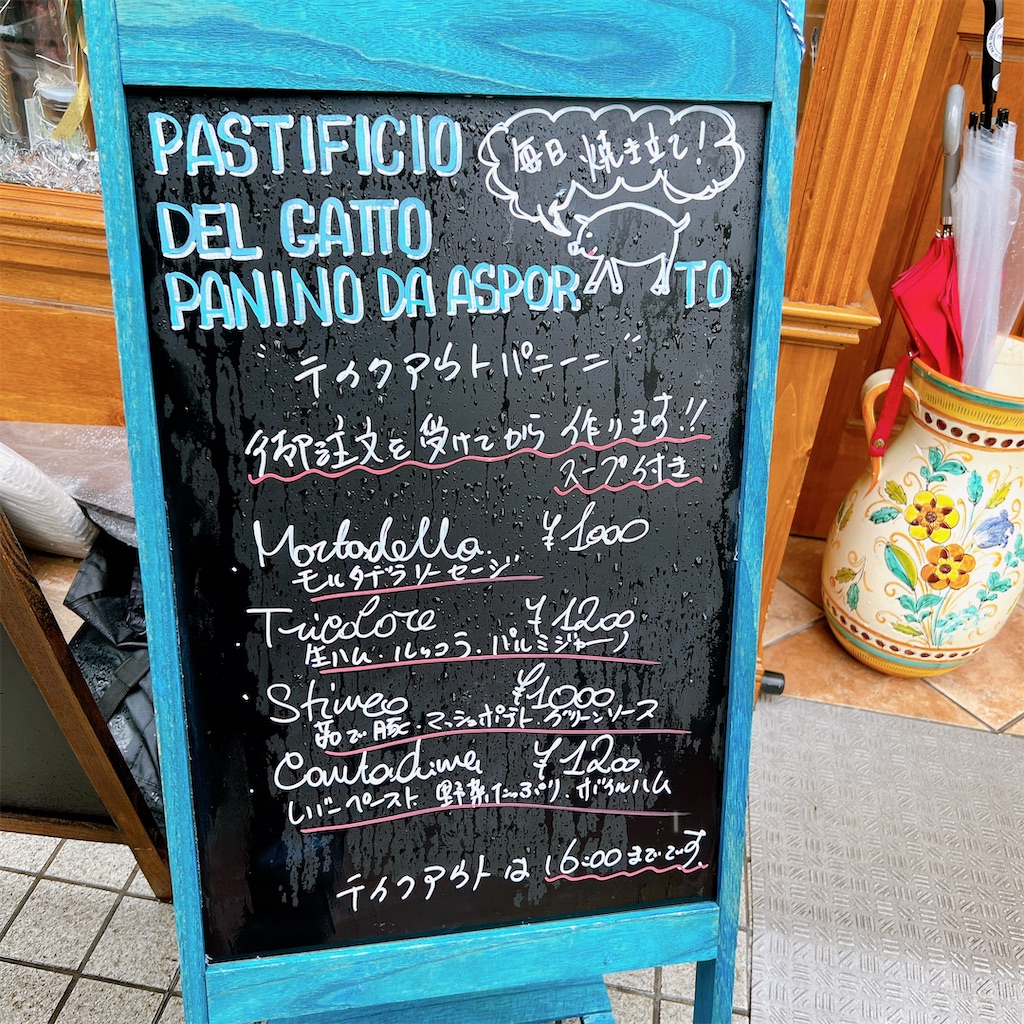 PASTIFICIO
毎日 焼き立て!
DEL GATTO
PANINO DA ASPORTO
"テイクアウトパニーニ"
御注文を受けてから 作ります!!
スープ付き
Mortadella ¥1000
モルタデラソーセージ
Tricolore ¥1200
生ハム・ルッコラ・パルミジャーノ
Stinco ¥1000
茹で豚・マッシュポテト・グリーンソース
Contadina ¥1200
レバーペースト・野菜たっぷり・ボイルハム
テイクアウトは 16:00までです